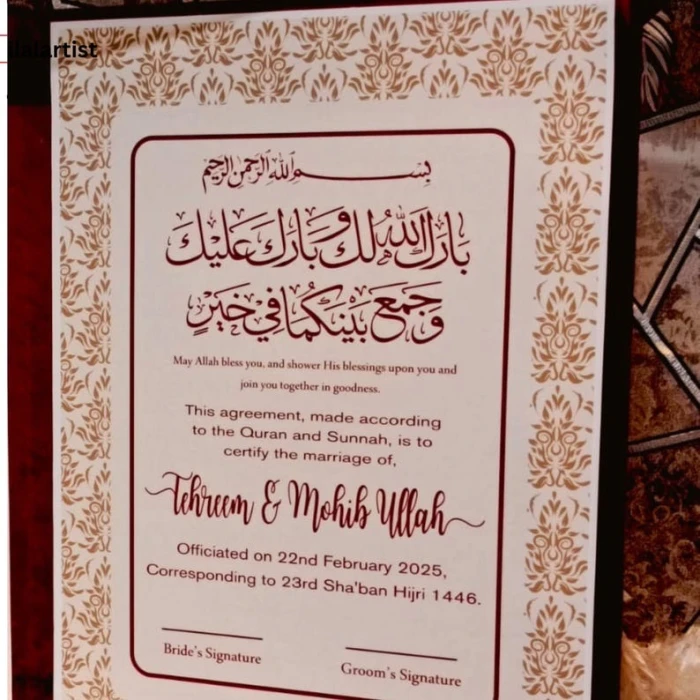 بِسْمِ اللهِ الرَّحْمٰنِ الرَّحِيْمِ
بَارَكَ اللهُ لَكَ وَبَارَكَ عَلَيْكَ
وَجَمَعَ بَيْنَكُمَا فِي خَيْرٍ
May Allah bless you, and shower His blessings upon you and
join you together in goodness.
This agreement, made according
to the Quran and Sunnah, is to
certify the marriage of,
Tehreem & Mohib Ullah
Officiated on 22nd February 2025,
Corresponding to 23rd Sha'ban Hijri 1446.
Bride's Signature
Groom's Signature